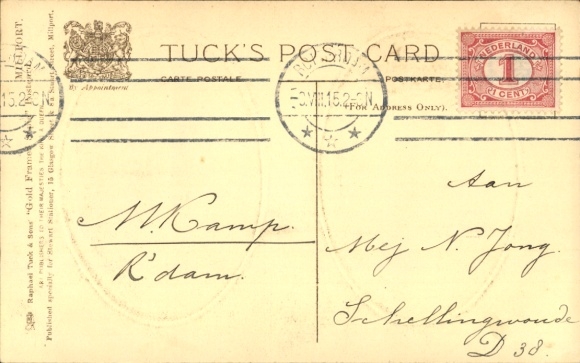 TUCK'S POST CARD
CARTE POSTALE
POSTKARTE
By Appointment
(For Address Only).
NEDERLAND
1
CENT
MILLPORT.
Raphael Tuck & Sons' "Gold Fram
Published specially for Stewart Stationer, 15 Glasgow Street, Millport.
15.2-3N
VIII.15.2-3N
M. Kamp.
R'dam.
Aan
Mej N. Jong.
Schellingwoude
D 38.